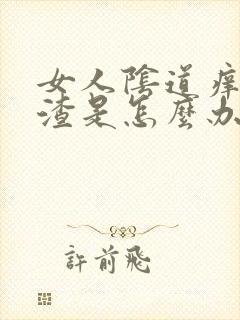 女人陰道痒
渣是怎麼办
許前飛